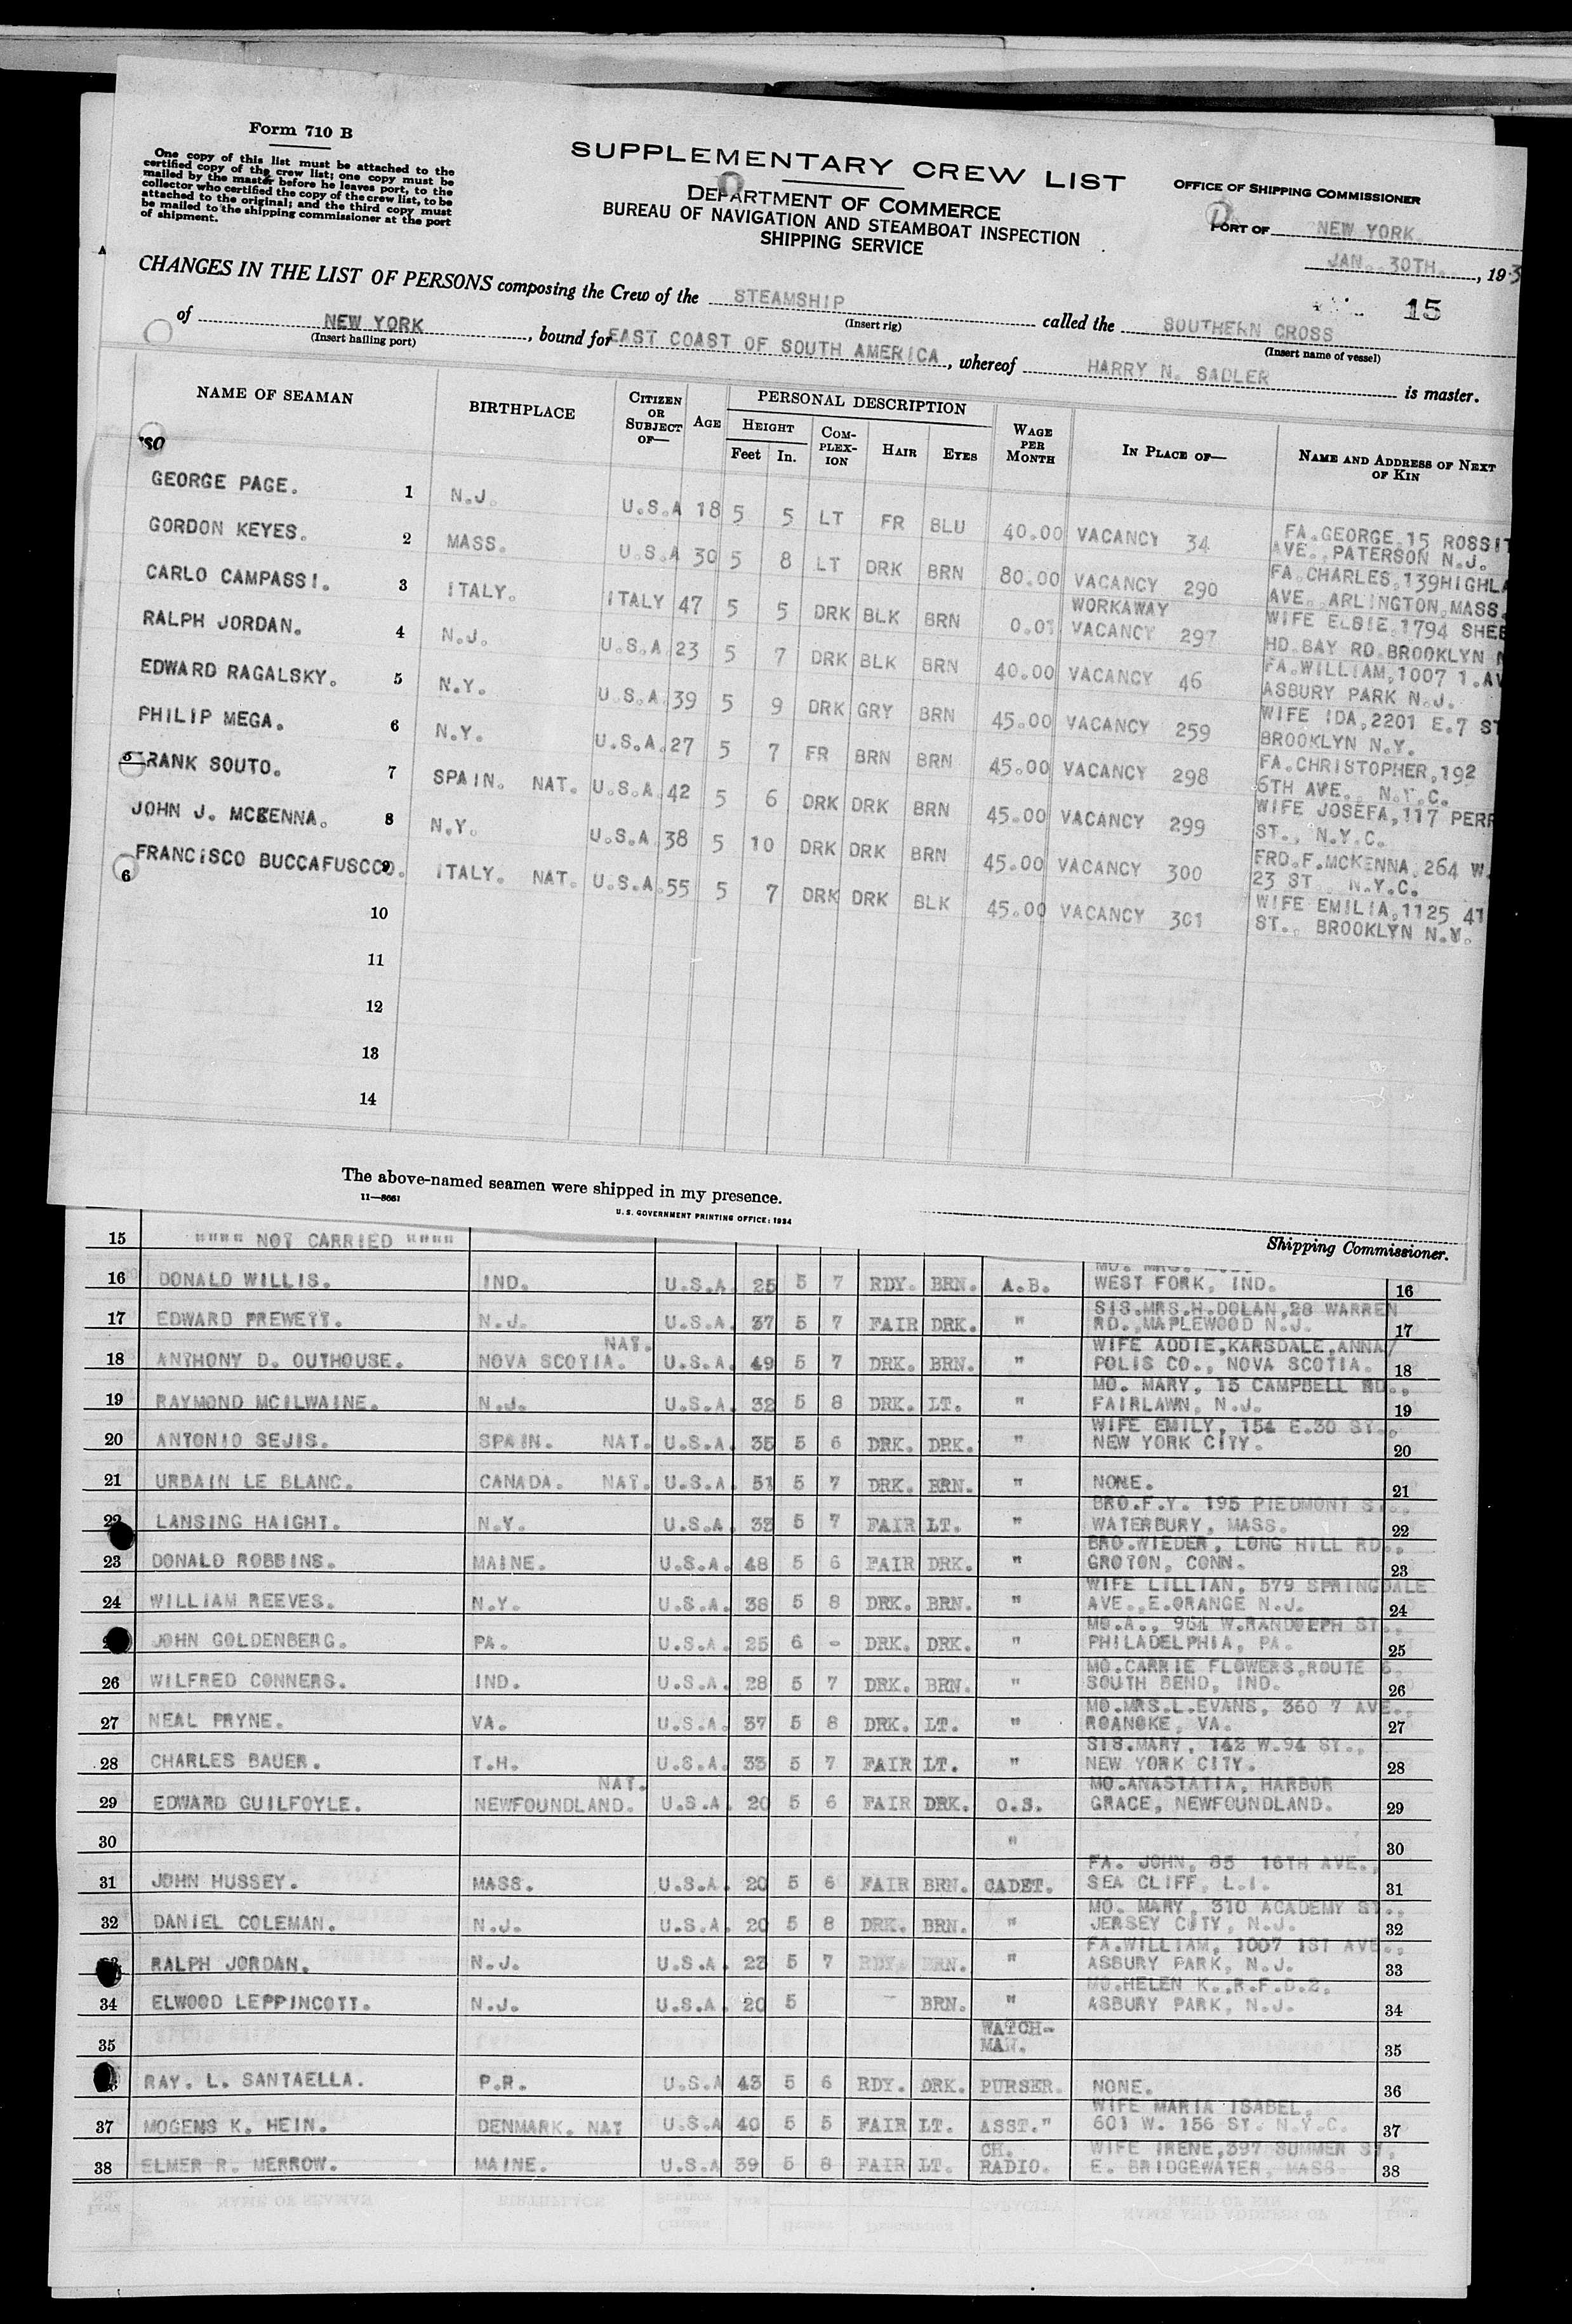 Form 710 B
One copy of this list must be attached to the
certified copy of the crew list; one copy must be
mailed by the master before he leaves port, to the
collector who certified the copy of the crew list, to be
attached to the original; and the third copy must
be mailed to the shipping commissioner at the port
of shipment.
SUPPLEMENTARY CREW LIST
DEPARTMENT OF COMMERCE
BUREAU OF NAVIGATION AND STEAMBOAT INSPECTION
SHIPPING SERVICE
OFFICE OF SHIPPING COMMISSIONER
PORT OF NEW YORK.
JAN. 30TH. , 193
15
CHANGES IN THE LIST OF PERSONS composing the Crew of the STEAMSHIP called the SOUTHERN CROSS
(Insert rig) (Insert name of vessel)
of NEW YORK , bound for EAST COAST OF SOUTH AMERICA , whereof HARRY N. SADLER is master.
(Insert hailing port)
NAME OF SEAMAN BIRTHPLACE CITIZEN OR SUBJECT OF— AGE PERSONAL DESCRIPTION WAGE PER MONTH IN PLACE OF— NAME AND ADDRESS OF NEXT OF KIN
HEIGHT COM-PLEX-ION HAIR EYES
Feet In.
GEORGE PAGE. 1 N.J. U.S.A 18 5 5 LT FR BLU 40.00 VACANCY 34 FA.GEORGE,15 ROSSIT
AVE., PATERSON N.J.
GORDON KEYES. 2 MASS. U.S.A 30 5 8 LT DRK BRN 80.00 VACANCY 290 FA.CHARLES,139HIGHLA
AVE. ARLINGTON,MASS.
WORKAWAY
CARLO CAMPASSI. 3 ITALY. ITALY 47 5 5 DRK BLK BRN 0.01 VACANCY 297 WIFE ELSIE,1794 SHEE
HD.BAY RD.BROOKLYN N
RALPH JORDAN. 4 N.J. U.S.A. 23 5 7 DRK BLK BRN 40.00 VACANCY 46 FA.WILLIAM,1007 1.AV
ASBURY PARK N.J.
EDWARD RAGALSKY. 5 N.Y. U.S.A. 39 5 9 DRK GRY BRN 45.00 VACANCY 259 WIFE IDA,2201 E.7 ST
BROOKLYN N.Y.
PHILIP MEGA. 6 N.Y. U.S.A. 27 5 7 FR BRN BRN 45.00 VACANCY 298 FA.CHRISTOPHER,192
6TH AVE., N.Y.C.
FRANK SOUTO. 7 SPAIN. NAT. U.S.A. 42 5 6 DRK DRK BRN 45.00 VACANCY 299 WIFE JOSEFA,117 PERR
ST., N.Y.C.
JOHN J. MCKENNA. 8 N.Y. U.S.A. 38 5 10 DRK DRK BRN 45.00 VACANCY 300 FRD.F.MCKENNA,264 W.
23 ST. N.Y.C.
FRANCISCO BUCCAFUSCCO. 9 ITALY. NAT. U.S.A. 55 5 7 DRK DRK BLK 45.00 VACANCY 301 WIFE EMILIA,1125 41
ST., BROOKLYN N.Y.
6
10
11
12
13
14
The above-named seamen were shipped in my presence.
11—8661
U.S. GOVERNMENT PRINTING OFFICE: 1934
Shipping Commissioner.
15 """" NOT CARRIED """"
16 DONALD WILLIS. IND. U.S.A. 25 5 7 RDY. BRN. A.B. WEST FORK, IND. 16
SIS.MRS.H.DOLAN,28 WARREN
17 EDWARD PREWETT. N.J. U.S.A. 37 5 7 FAIR DRK. " RD.,MAPLEWOOD N.J. 17
NAT. WIFE ADDIE,KARSDALE,ANNA/
18 ANTHONY D. OUTHOUSE. NOVA SCOTIA. U.S.A. 49 5 7 DRK. BRN. " POLIS CO., NOVA SCOTIA. 18
MO. MARY, 15 CAMPBELL RD.,
19 RAYMOND MCILWAINE. N.J. U.S.A. 32 5 8 DRK. LT. " FAIRLAWN, N.J. 19
WIFE EMILY, 154 E.30 ST.,
20 ANTONIO SEJIS. SPAIN. NAT. U.S.A. 35 5 6 DRK. DRK. " NEW YORK CITY. 20
21 URBAIN LE BLANC. CANADA. NAT. U.S.A. 51 5 7 DRK. BRN. " NONE. 21
BRO.F.Y. 195 PIEDMONT ST.,
22 LANSING HAIGHT. N.Y. U.S.A. 33 5 7 FAIR LT. " WATERBURY, MASS. 22
BRO.WIEDER, LONG HILL RD.,
23 DONALD ROBBINS. MAINE. U.S.A. 48 5 6 FAIR DRK. " GROTON, CONN. 23
WIFE LILLIAN, 579 SPRINGDALE
24 WILLIAM REEVES. N.Y. U.S.A. 38 5 8 DRK. BRN. " AVE.,E.ORANGE N.J. 24
MO.A., 961 W.RANDOLPH ST.,
JOHN GOLDENBERG. PA. U.S.A. 25 6 - DRK. DRK. " PHILADELPHIA, PA. 25
MO.CARRIE FLOWERS,ROUTE 6,
26 WILFRED CONNERS. IND. U.S.A. 28 5 7 DRK. BRN. " SOUTH BEND, IND. 26
MO.MRS.L.EVANS, 360 7 AVE.,
27 NEAL PRYNE. VA. U.S.A. 37 5 8 DRK. LT. " ROANOKE, VA. 27
SIS.MARY, 142 W.94 ST.,
28 CHARLES BAUER. T.H. U.S.A. 33 5 7 FAIR LT. " NEW YORK CITY. 28
NAT. MO.ANASTATIA, HARBOR
29 EDWARD GUILFOYLE. NEWFOUNDLAND. U.S.A. 20 5 6 FAIR DRK. O.S. GRACE, NEWFOUNDLAND. 29
30 " 30
FA. JOHN, 85 16TH AVE.,
31 JOHN HUSSEY. MASS. U.S.A. 20 5 6 FAIR BRN. CADET. SEA CLIFF, L.I. 31
MO. MARY, 310 ACADEMY ST.,
32 DANIEL COLEMAN. N.J. U.S.A. 20 5 8 DRK. BRN. " JERSEY CITY, N.J. 32
FA.WILLIAM, 1007 1ST AVE.,
RALPH JORDAN. N.J. U.S.A. 23 5 7 RDY. BRN. " ASBURY PARK, N.J. 33
MO.HELEN K.,R.F.D.2,
34 ELWOOD LEPPINCOTT. N.J. U.S.A. 20 5 BRN. " ASBURY PARK, N.J. 34
WATCH-
35 MAN. 35
RAY. L. SANTAELLA. P.R. U.S.A 43 5 6 RDY. DRK. PURSER. NONE. 36
WIFE MARIA ISABEL,
37 MOGENS K. HEIN. DENMARK. NAT U.S.A 40 5 5 FAIR LT. ASST." 601 W. 156 ST. N.Y.C. 37
CH. WIFE IRENE,397 SUMMER ST,
38 ELMER R. MERROW. MAINE. U.S.A 39 5 8 FAIR LT. RADIO. E. BRIDGEWATER, MASS. 38